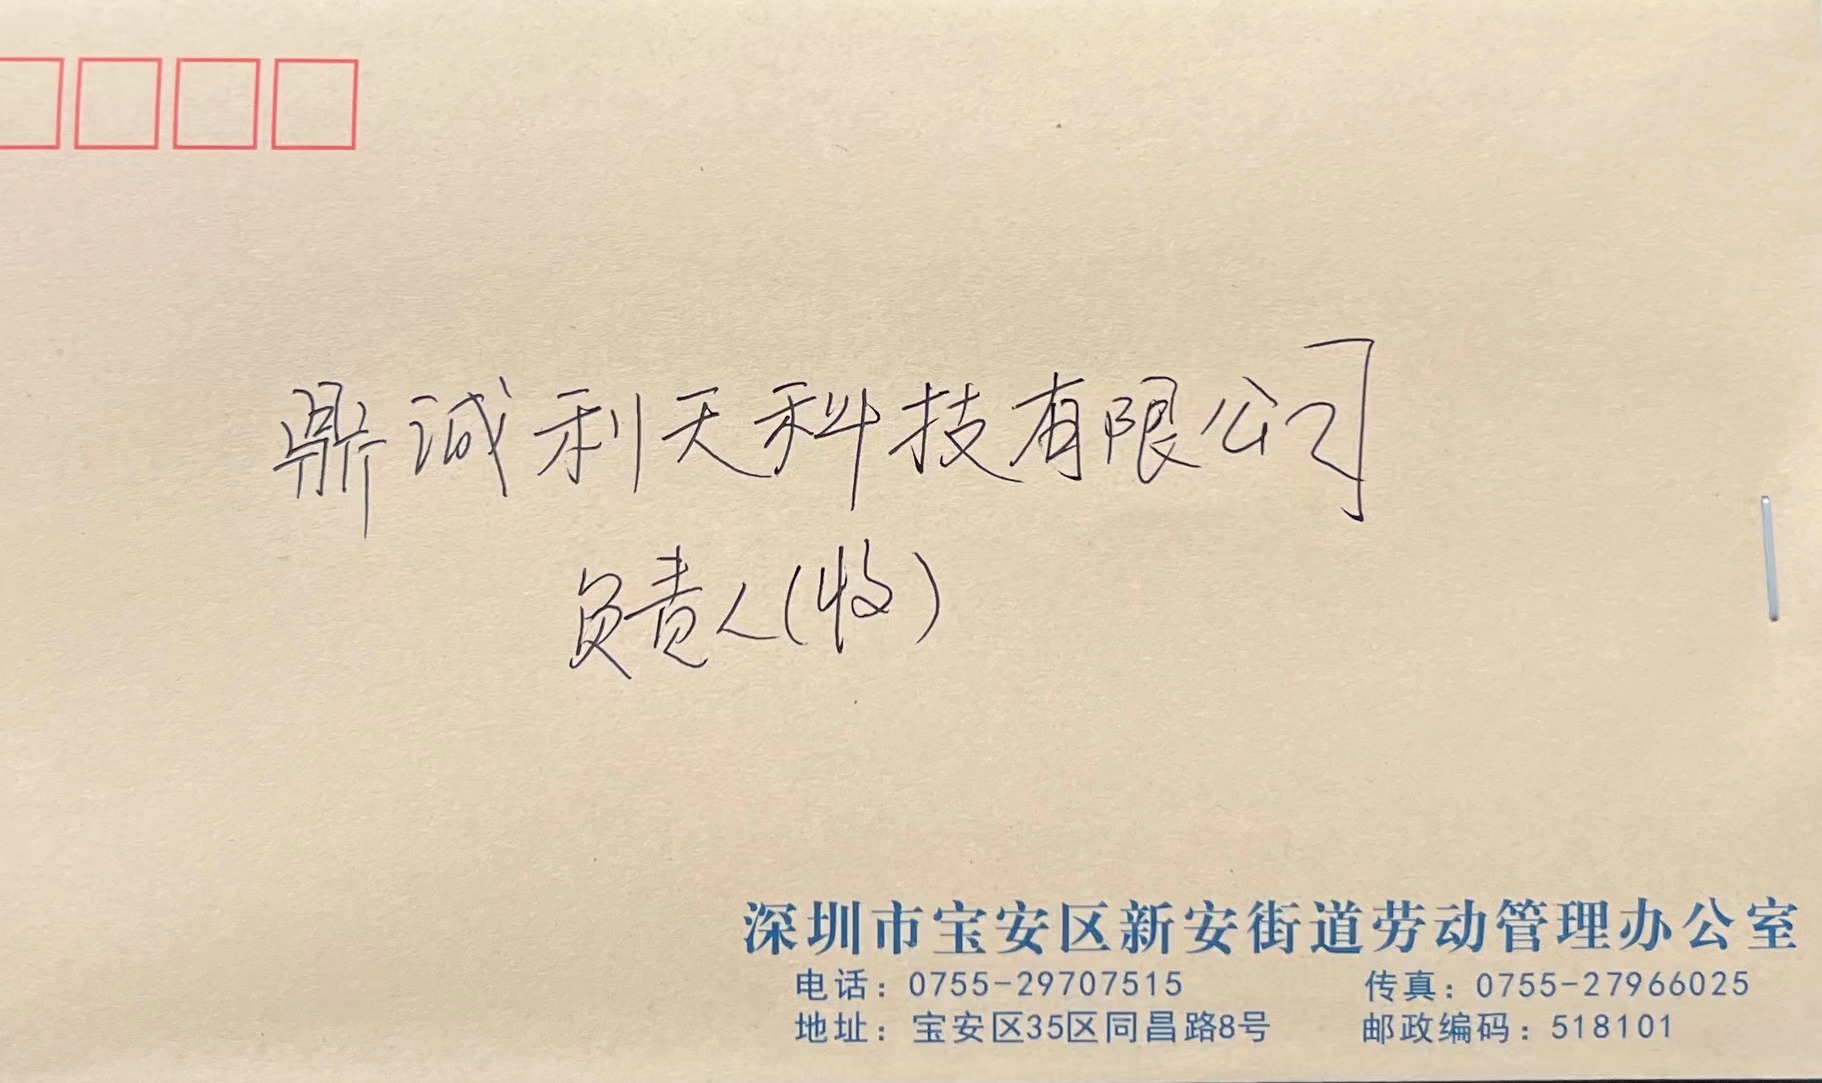 鼎诚利天科技有限公司
负责人(收)
深圳市宝安区新安街道劳动管理办公室
电话：0755-29707515 传真：0755-27966025
地址：宝安区35区同昌路8号 邮政编码：518101